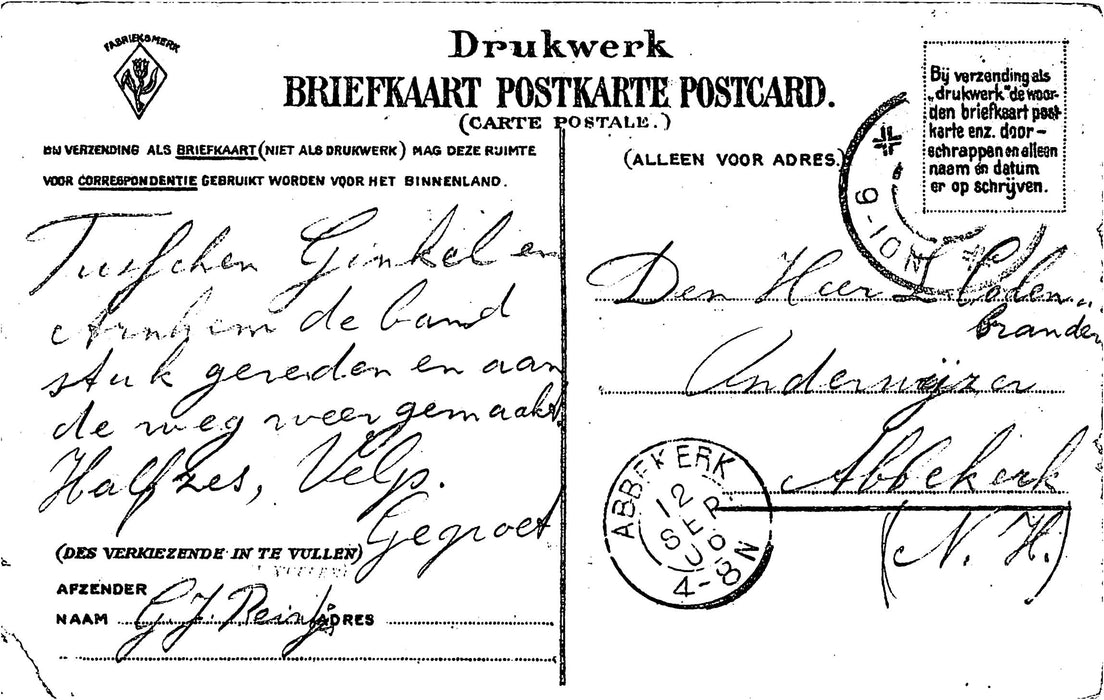 FABRIEKSMERK
Drukwerk
BRIEFKAART POSTKARTE POSTCARD.
(CARTE POSTALE.)
BIJ VERZENDING ALS BRIEFKAART (NIET ALS DRUKWERK) MAG DEZE RUIMTE
VOOR CORRESPONDENTIE GEBRUIKT WORDEN VOOR HET BINNENLAND.
Tusschen Ginkel en
Arnhem de band
stuk gereden en aan
de weg weer gemaakt.
Halfzes, Velp.
Gegroet
(DES VERKIEZENDE IN TE VULLEN)
AFZENDER
NAAM G. J. ADRES
(ALLEEN VOOR ADRES.)
Bij verzending als
„drukwerk" de woor-
den briefkaart post-
karte enz. door-
schrappen en alleen
naam en datum
er op schrijven.
6-10N
Den Heer
brander
Onderwijzer
Abbekerk
(N. H.)
ABBEKERK
12
SEP
06
4-8N